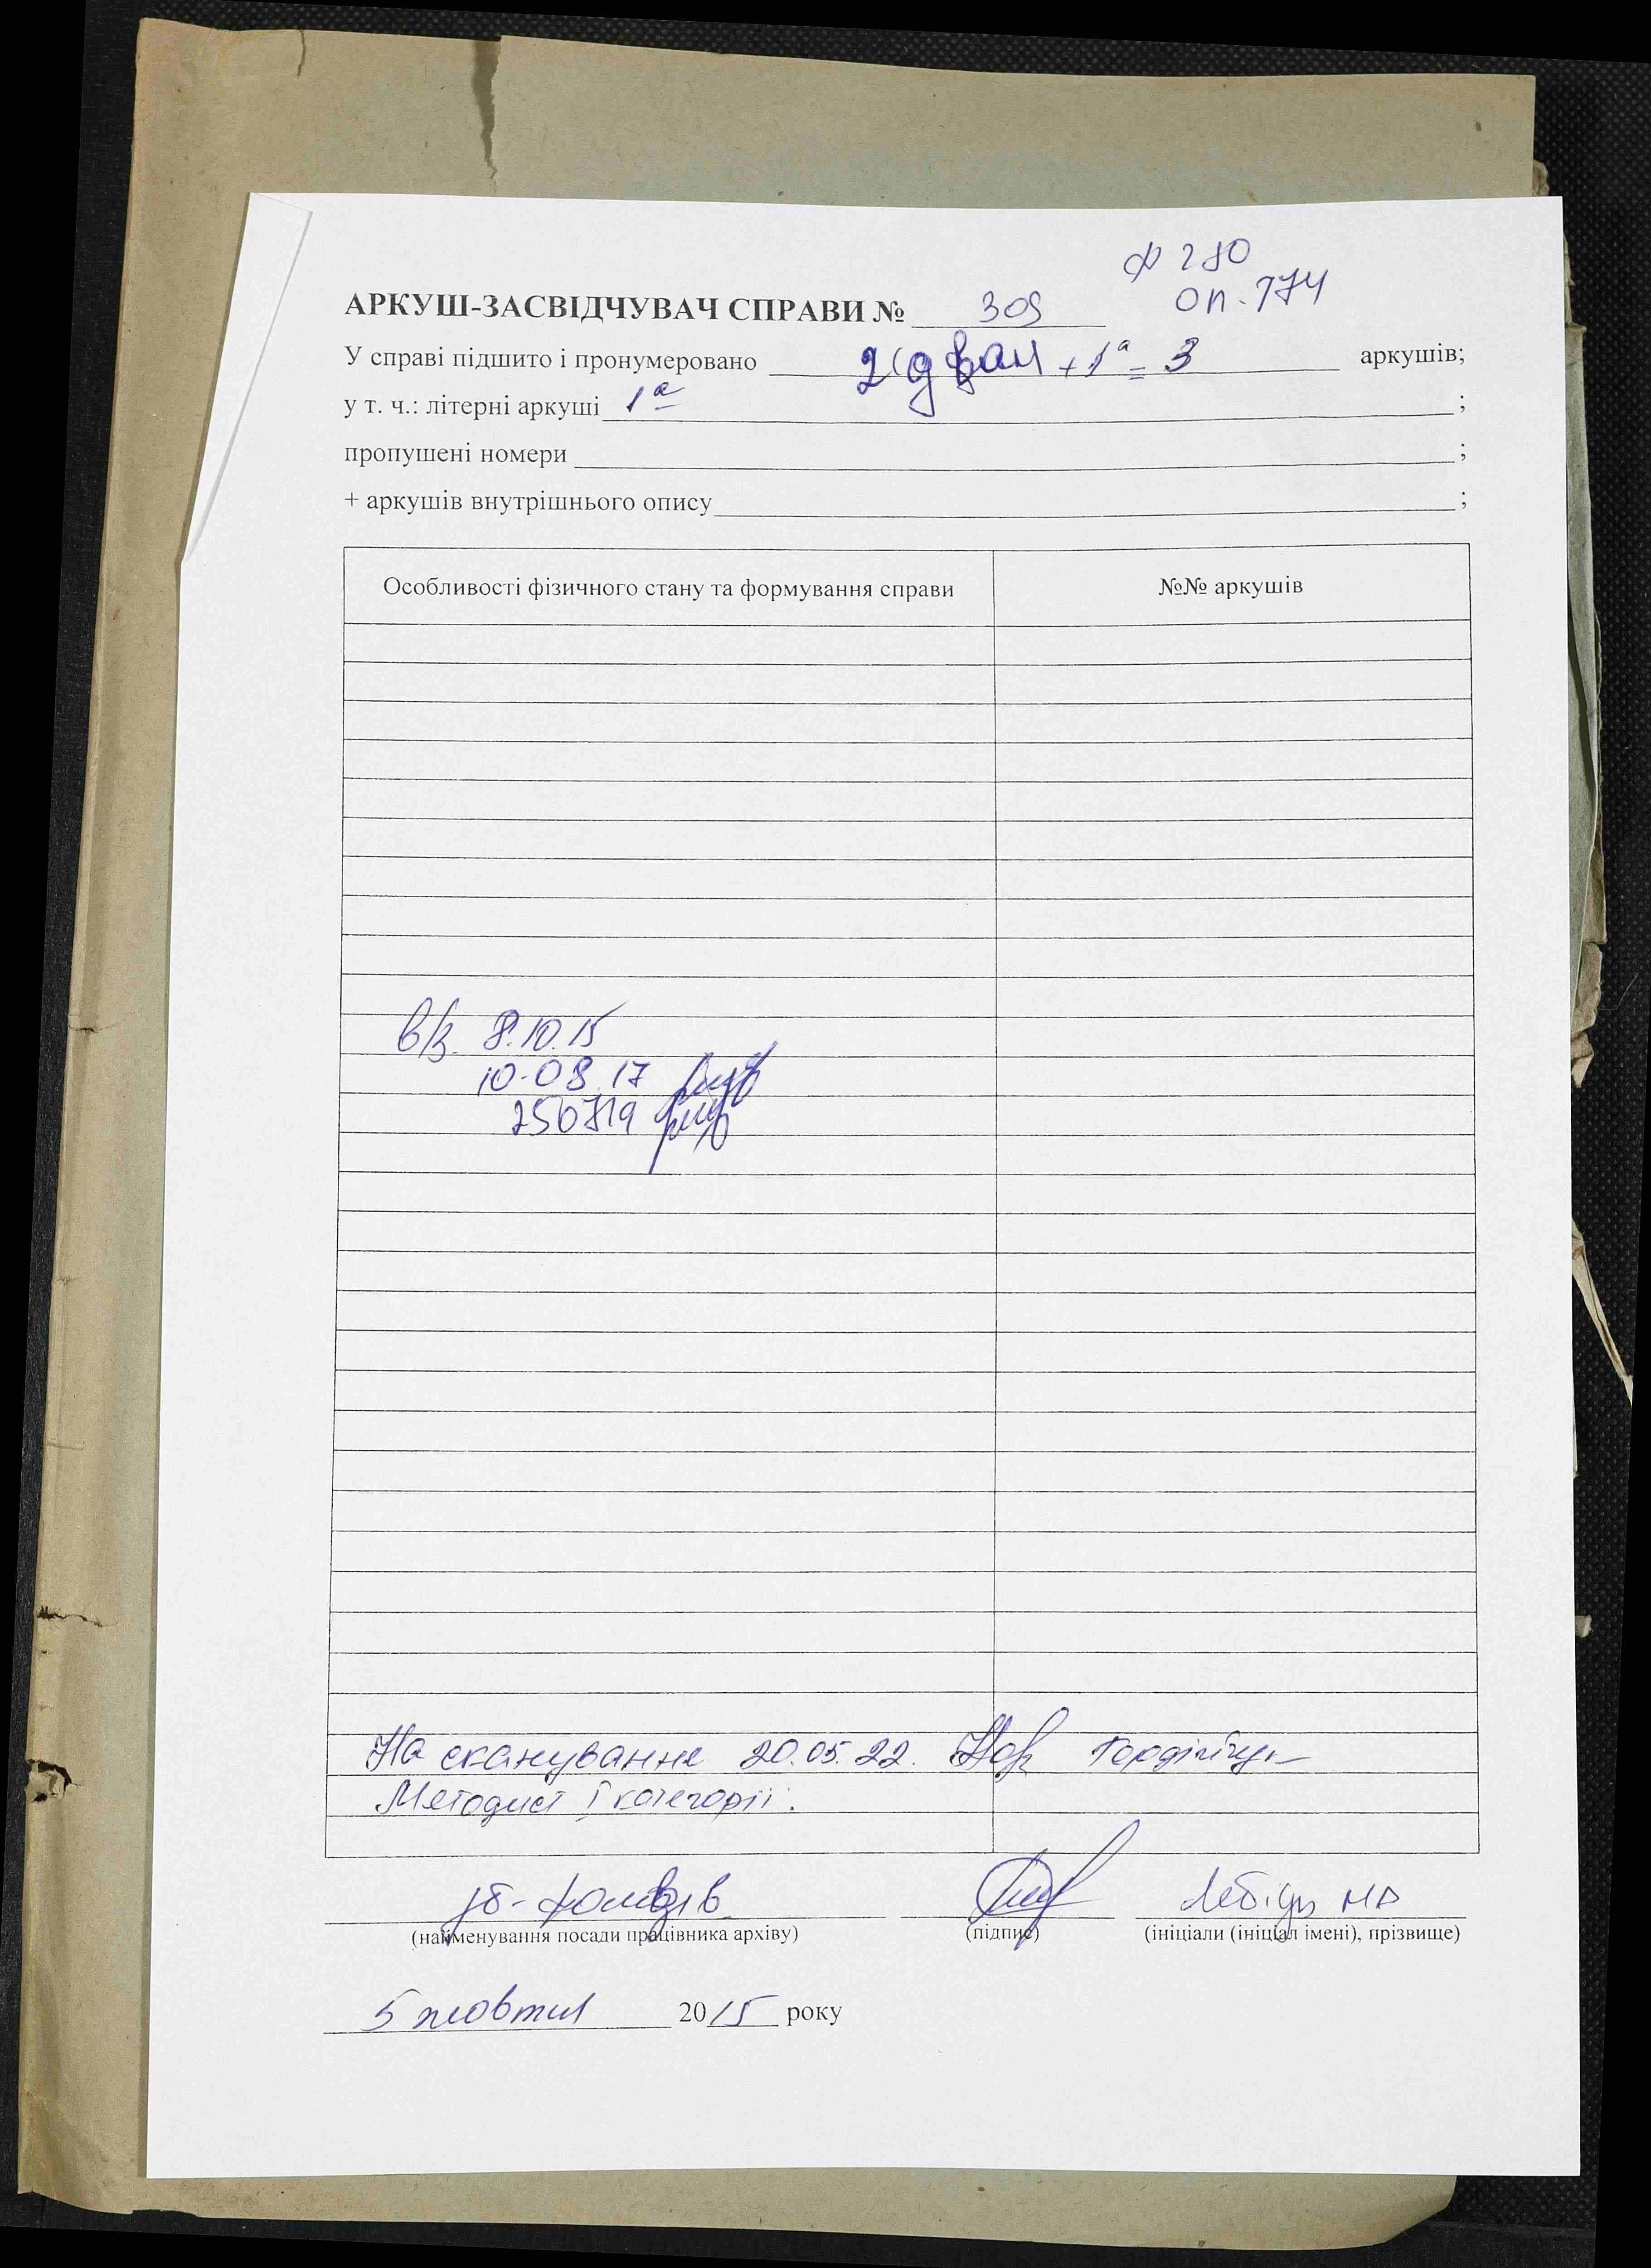 ф 280
оп. 174
АРКУШ-ЗАСВІДЧУВАЧ СПРАВИ № 309
У справі підшито і пронумеровано 2 (два) + 1ª = 3 аркушів;
у т. ч.: літерні аркуші 1ª ;
пропушені номери ;
+ аркушів внутрішнього опису ;
Особливості фізичного стану та формування справи №№ аркушів
в/з. 8.10.15
10.08.17
250719
На сканування 20.05.22.
Методист І категорії.
Лебідь МА
(найменування посади працівника архіву) (підпис) (ініціали (ініціал імені), прізвище)
5 жовтня 2015 року